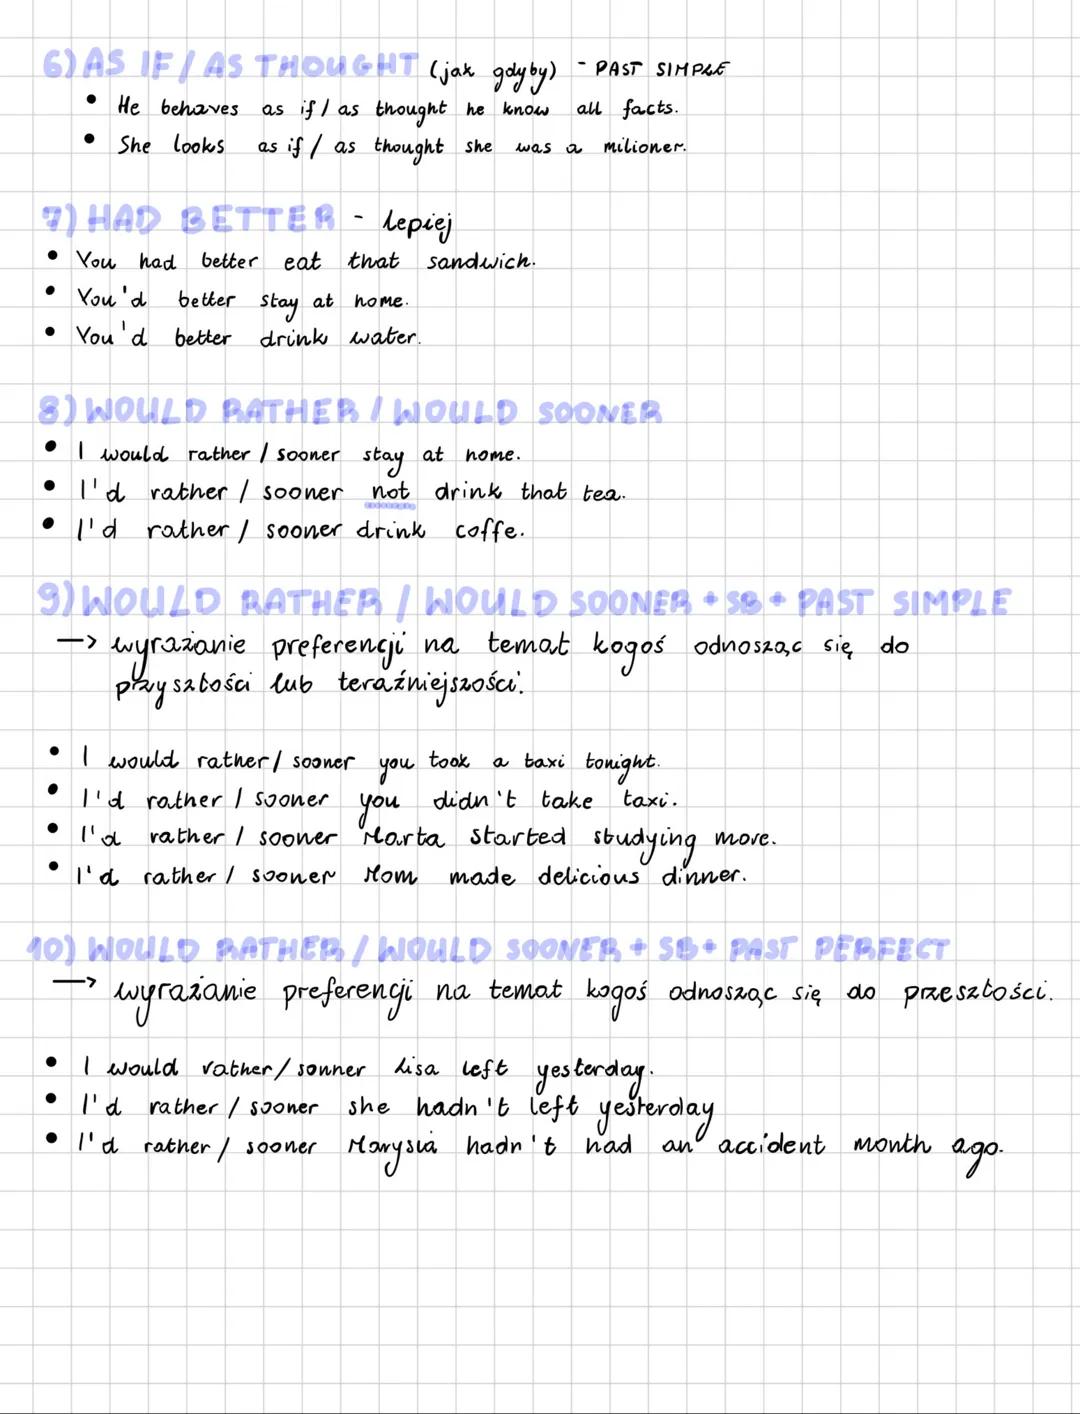 6) AS IF / AS THOUGHT (jak gdyby) - PAST SIMPLE
• He behaves as if / as thought he know all facts.
• She looks as if / as thought she was a milioner.
7) HAD BETTER - lepiej
• You had better eat that sandwich.
• You'd better stay at home.
• You'd better drink water.
8) WOULD RATHER / WOULD SOONER
• I would rather / sooner stay at home.
• I'd rather / sooner not drink that tea.
• I'd rather / sooner drink coffe.
9) WOULD RATHER / WOULD SOONER + SB + PAST SIMPLE
—> wyrażanie preferencji na temat kogoś odnosząc się do
przyszłości lub teraźniejszości.
• I would rather / sooner you took a taxi tonight.
• I'd rather / sooner you didn't take taxi.
• I'd rather / sooner Marta started studying more.
• I'd rather / sooner Mom made delicious dinner.
10) WOULD RATHER / WOULD SOONER + SB + PAST PERFECT
—> wyrażanie preferencji na temat kogoś odnosząc się do przeszłości.
• I would rather / sonner Lisa left yesterday.
• I'd rather / sooner she hadn't left yesterday
• I'd rather / sooner Marysia hadn't had an accident month ago.